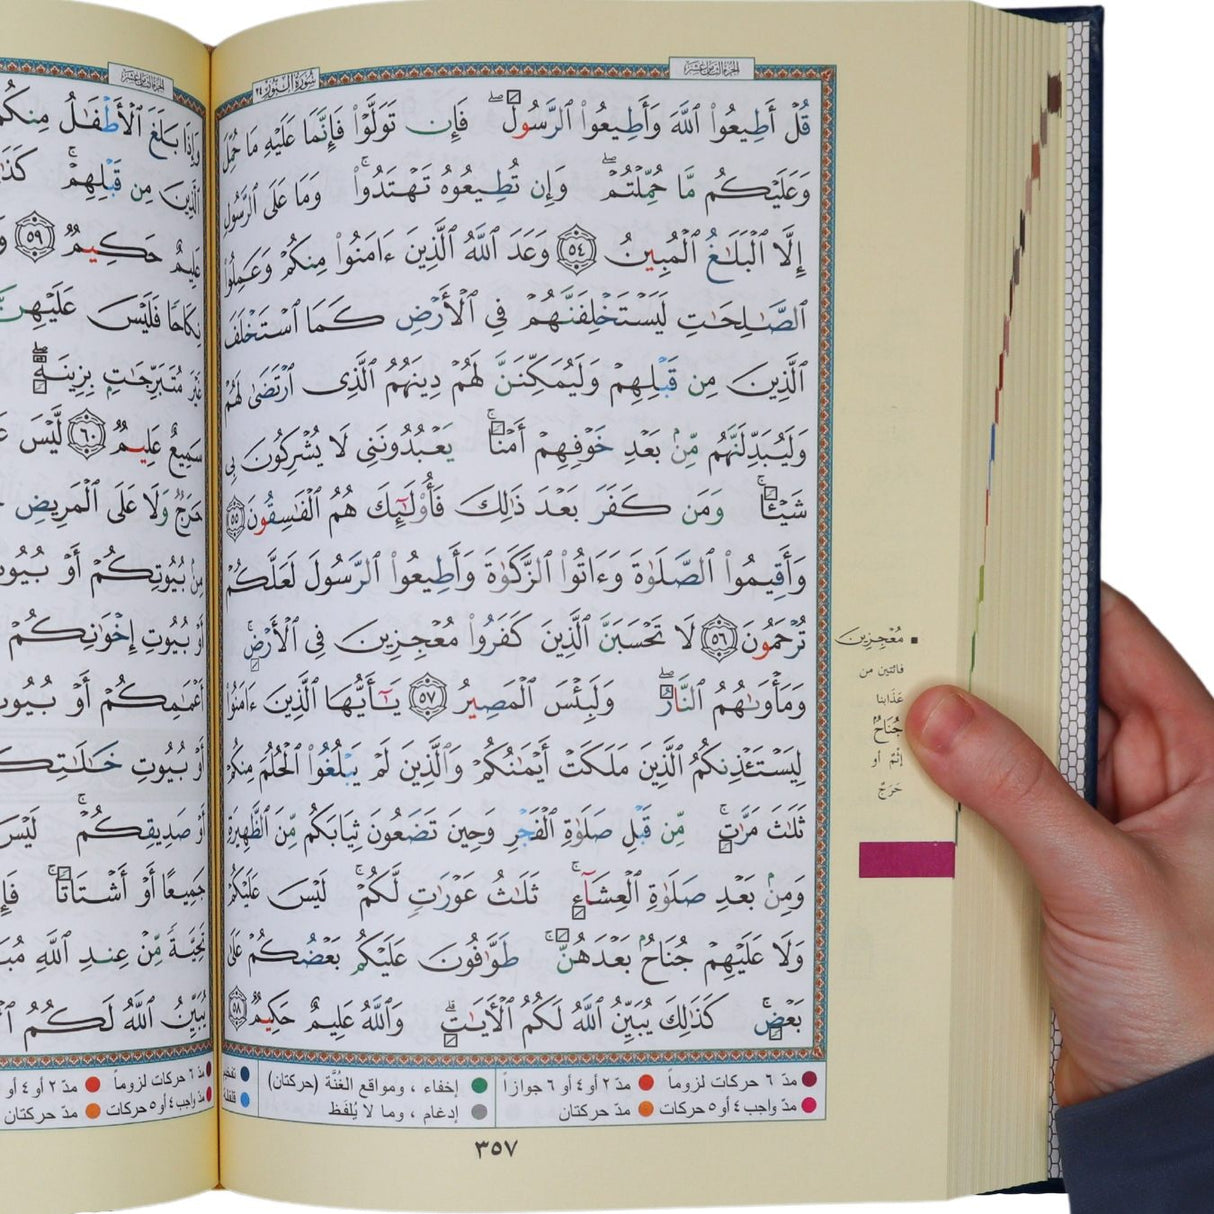 سورة النور ٢٤
الجزء الثامن عشر
قُلْ أَطِيعُوا۟ ٱللَّهَ وَأَطِيعُوا۟ ٱلرَّسُولَ ۖ فَإِن تَوَلَّوْا۟ فَإِنَّمَا عَلَيْهِ مَا حُمِّلَ
وَعَلَيْكُم مَّا حُمِّلْتُمْ ۖ وَإِن تُطِيعُوهُ تَهْتَدُوا۟ ۚ وَمَا عَلَى ٱلرَّسُولِ
إِلَّا ٱلْبَلَٰغُ ٱلْمُبِينُ ٥٤ وَعَدَ ٱللَّهُ ٱلَّذِينَ ءَامَنُوا۟ مِنكُمْ وَعَمِلُوا۟
ٱلصَّٰلِحَٰتِ لَيَسْتَخْلِفَنَّهُمْ فِى ٱلْأَرْضِ كَمَا ٱسْتَخْلَفَ
ٱلَّذِينَ مِن قَبْلِهِمْ وَلَيُمَكِّنَنَّ لَهُمْ دِينَهُمُ ٱلَّذِى ٱرْتَضَىٰ لَهُمْ
وَلَيُبَدِّلَنَّهُم مِّنۢ بَعْدِ خَوْفِهِمْ أَمْنًا ۚ يَعْبُدُونَنِى لَا يُشْرِكُونَ بِى
شَيْـًٔا ۚ وَمَن كَفَرَ بَعْدَ ذَٰلِكَ فَأُو۟لَٰٓئِكَ هُمُ ٱلْفَٰسِقُونَ ٥٥
وَأَقِيمُوا۟ ٱلصَّلَوٰةَ وَءَاتُوا۟ ٱلزَّكَوٰةَ وَأَطِيعُوا۟ ٱلرَّسُولَ لَعَلَّكُمْ
تُرْحَمُونَ ٥٦ لَا تَحْسَبَنَّ ٱلَّذِينَ كَفَرُوا۟ مُعْجِزِينَ فِى ٱلْأَرْضِ ۚ
وَمَأْوَىٰهُمُ ٱلنَّارُ ۖ وَلَبِئْسَ ٱلْمَصِيرُ ٥٧ يَٰٓأَيُّهَا ٱلَّذِينَ ءَامَنُوا۟
لِيَسْتَـْٔذِنكُمُ ٱلَّذِينَ مَلَكَتْ أَيْمَٰنُكُمْ وَٱلَّذِينَ لَمْ يَبْلُغُوا۟ ٱلْحُلُمَ مِنكُمْ
ثَلَٰثَ مَرَّٰتٍ ۚ مِّن قَبْلِ صَلَوٰةِ ٱلْفَجْرِ وَحِينَ تَضَعُونَ ثِيَابَكُم مِّنَ ٱلظَّهِيرَةِ
وَمِنۢ بَعْدِ صَلَوٰةِ ٱلْعِشَآءِ ۚ ثَلَٰثُ عَوْرَٰتٍ لَّكُمْ ۚ لَيْسَ عَلَيْكُمْ
وَلَا عَلَيْهِمْ جُنَاحٌۢ بَعْدَهُنَّ ۚ طَوَّٰفُونَ عَلَيْكُم بَعْضُكُمْ عَلَىٰ
بَعْضٍ ۚ كَذَٰلِكَ يُبَيِّنُ ٱللَّهُ لَكُمُ ٱلْـَٔايَٰتِ ۗ وَٱللَّهُ عَلِيمٌ حَكِيمٌ ٥٨
مُعْجِزِينَ
فائتين من
عَذَابنا
جُنَاحٌ
إثْمٌ أو
حَرَجٌ
مدّ ٦ حركات لزوماً مدّ ٢ أو ٤ أو ٦ جوازاً إخفاء ، ومواقع الغُنَّة (حركتان) تفخيم
مدّ واجب ٤ أو ٥ حركات مدّ حركتان إدغام ، وما لا يُلفَظ قلقلة
٣٥٧
الجزء الثامن عشر
وَإِذَا بَلَغَ ٱلْأَطْفَٰلُ مِنكُمُ
ٱلَّذِينَ مِن قَبْلِهِمْ ۚ
عَلِيمٌ حَكِيمٌ ٥٩
نِكَاحًا فَلَيْسَ عَلَيْهِنَّ
غَيْرَ مُتَبَرِّجَٰتٍۭ بِزِينَةٍ ۖ
سَمِيعٌ عَلِيمٌ ٦٠ لَّيْسَ
حَرَجٌ وَلَا عَلَى ٱلْمَرِيضِ
مِنۢ بُيُوتِكُمْ أَوْ بُيُوتِ
أَوْ بُيُوتِ إِخْوَٰنِكُمْ
أَعْمَٰمِكُمْ أَوْ بُيُوتِ
أَوْ بُيُوتِ خَٰلَٰتِكُمْ
أَوْ صَدِيقِكُمْ ۚ لَيْسَ
جَمِيعًا أَوْ أَشْتَاتًا ۚ فَإِذَا
تَحِيَّةً مِّنْ عِندِ ٱللَّهِ
يُبَيِّنُ ٱللَّهُ لَكُمُ
مدّ ٦ حركات لزوماً مدّ ٢ أو ٤ أو
مدّ واجب ٤ أو ٥ حركات مدّ حركتان